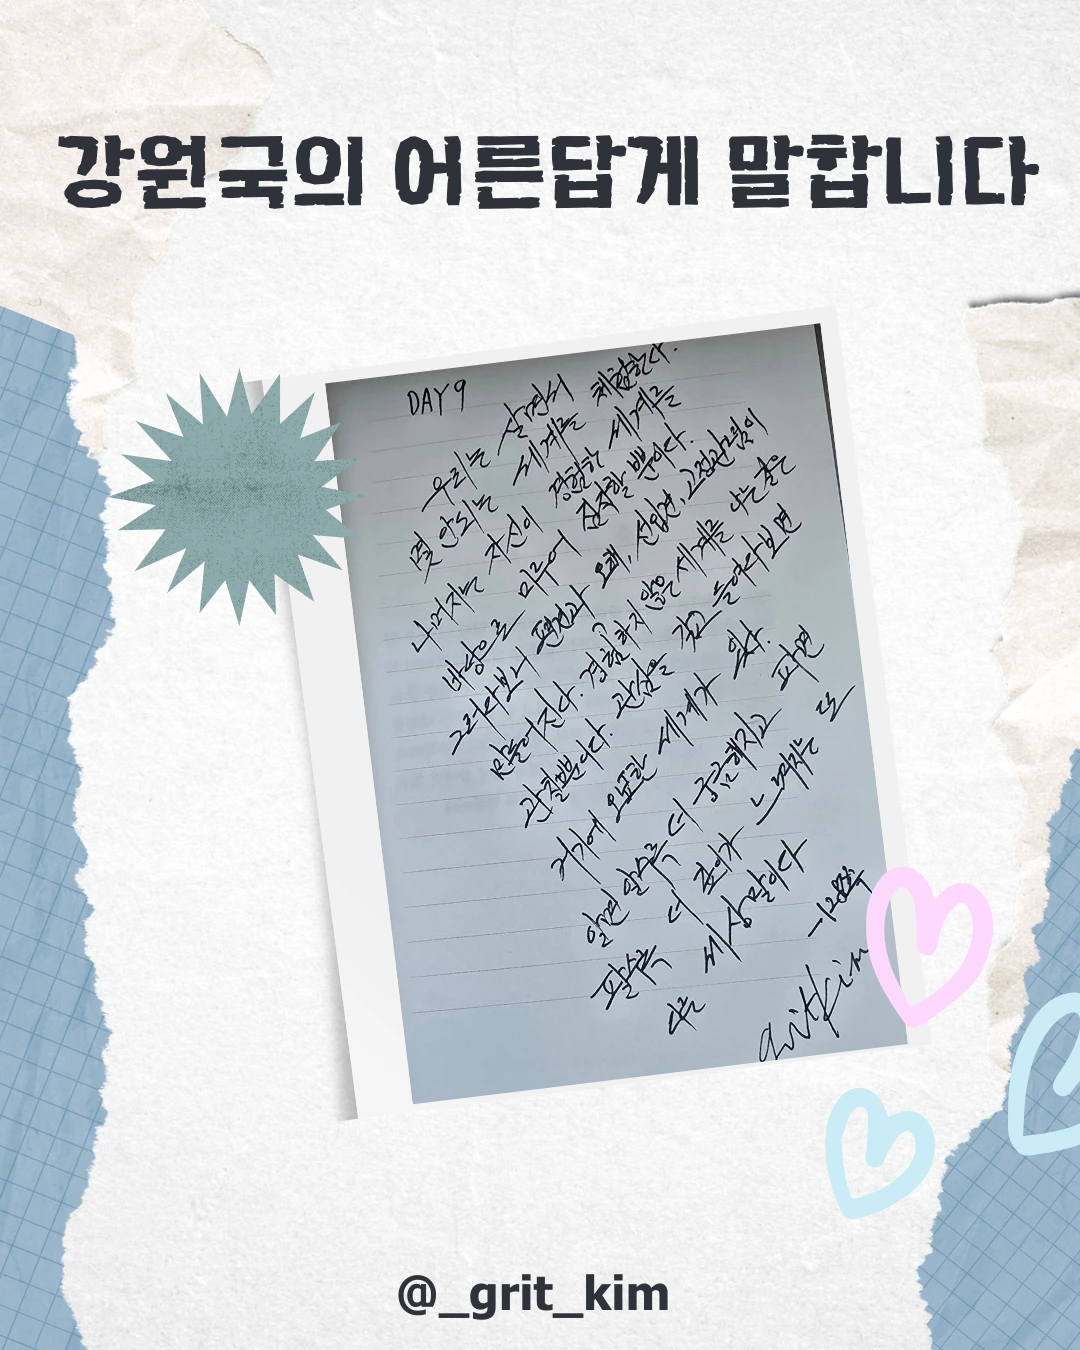 강원국의 어른답게 말합니다
DAY 9
우리는 살면서
몇 안되는 세계를 체험한다.
나머지는 자신이 경험한 세계를
바탕으로 미루어 짐작할 뿐이다.
그러다보니 편견과 오해, 선입견, 고정관념이
만들어진다. 경험하지 않은 세계를 나는 좁은
관찰뿐이다. 관심을 갖고 들여다보면
거기에 오묘한 세계가 있다.
알면 알수록 더 궁금해지고 파면
팔수록 더 깊이가 느껴지는 또
다른 세상말이다
GritKim
@_grit_kim